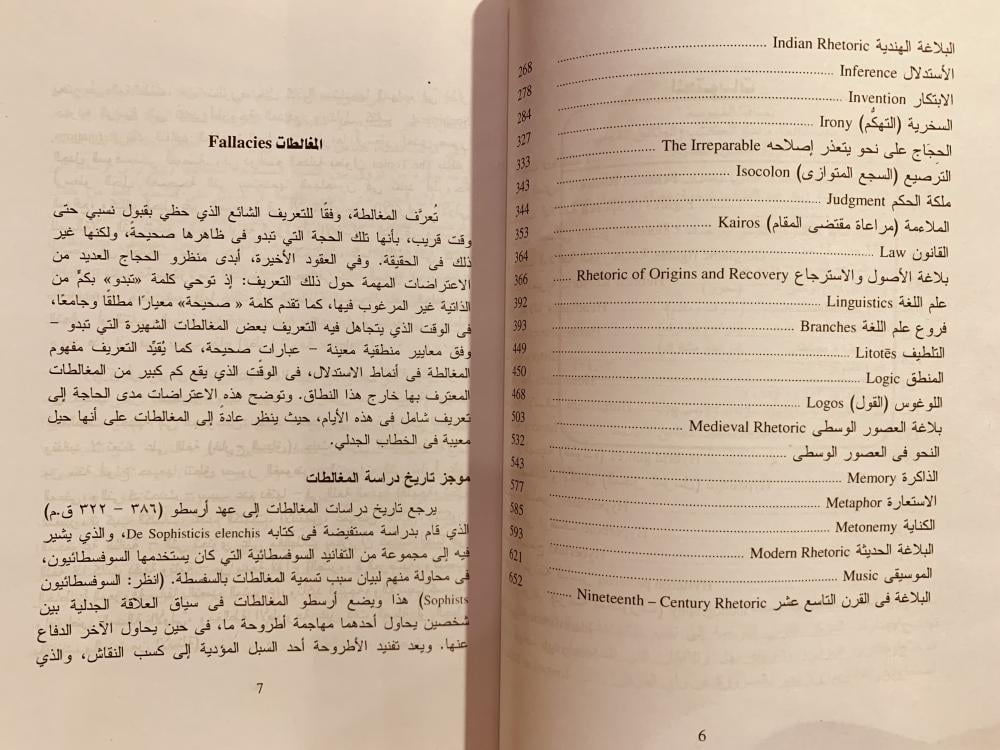 البلاغة الهندية Indian Rhetoric ........ 268
الأستدلال Inference ........ 278
الابتكار Invention ........ 284
السخرية (التهكُّم) Irony ........ 327
الحِجَاج على نحو يتعذر إصلاحه The Irreparable ........ 333
الترصيع (السجع المتوازى) Isocolon ........ 343
ملكة الحكم Judgment ........ 344
الملاءمة (مراعاة مقتضى المقام) Kairos ........ 353
القانون Law ........ 364
بلاغة الأصول والاسترجاع Rhetoric of Origins and Recovery ..... 366
علم اللغة Linguistics ........ 392
فروع علم اللغة Branches ........ 393
التلطيف Litotēs ........ 449
المنطق Logic ........ 450
اللوغوس (القول) Logos ........ 468
بلاغة العصور الوسطى Medieval Rhetoric ........ 503
النحو فى العصور الوسطى ........ 532
الذاكرة Memory ........ 543
الاستعارة Metaphor ........ 577
الكناية Metonemy ........ 585
البلاغة الحديثة Modern Rhetoric ........ 593
الموسيقى Music ........ 621
البلاغة فى القرن التاسع عشر Nineteenth – Century Rhetoric ...... 652
6
المغالطات Fallacies
تُعرَّف المغالطة، وفقًا للتعريف الشائع الذي حظي بقبول نسبي حتى
وقت قريب، بأنها تلك الحجة التي تبدو فى ظاهرها صحيحةً، ولكنها غير
ذلك فى الحقيقة. وفي العقود الأخيرة، أبدى منظرو الحجاج العديد من
الاعتراضات المهمة حول ذلك التعريف: إذ توحي كلمة «تبدو» بكمٍّ من
الذاتية غير المرغوب فيها، كما تقدم كلمة « صحيحة» معيارًا مطلقًا وجامعًا،
فى الوقت الذي يتجاهل فيه التعريف بعض المغالطات الشهيرة التي تبدو –
وفق معايير منطقية معينة – عبارات صحيحة، كما يُقيِّد التعريف مفهوم
المغالطة فى أنماط الاستدلال، فى الوقت الذي يقع كم كبير من المغالطات
المعترف بها خارج هذا النطاق. وتوضح هذه الاعتراضات مدى الحاجة إلى
تعريف شامل فى هذه الأيام، حيث ينظر عادةً إلى المغالطات على أنها حيل
معيبة فى الخطاب الجدلي.
موجز تاريخ دراسة المغالطات
يرجع تاريخ دراسات المغالطات إلى عهد أرسطو (٣٨٦ – ٣٢٢ ق.م)
الذي قام بدراسة مستفيضة فى كتابه De Sophisticis elenchis، والذي يشير
فيه إلى مجموعة من التفانيد السوفسطائية التي كان يستخدمها السوفسطائيون،
فى محاولة منهم لبيان سبب تسمية المغالطات بالسفسطة. (انظر: السوفسطائيون
Sophists) هذا ويضع أرسطو المغالطات فى سياق العلاقة الجدلية بين
شخصين يحاول أحدهما مهاجمة أطروحة ما، فى حين يحاول الآخر الدفاع
عنها. ويعد تفنيد الأطروحة أحد السبل المؤدية إلى كسب النقاش، والذي
7